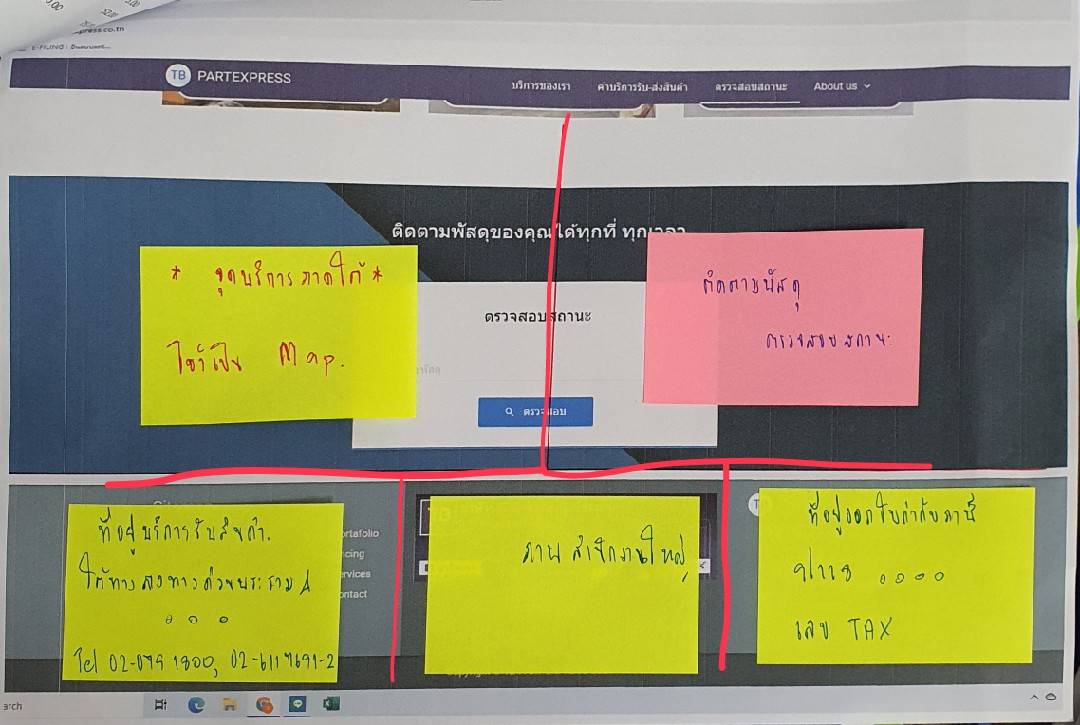 press.co.tn
TB PARTEXPRESS
บริการของเรา
ค่าบริการรับ-ส่งสินค้า
ตรวจสอบสถานะ
About us
ติดตามพัสดุของคุณได้ทุกที่ ทุกเวลา
* จุดบริการภาคใต้ *
ใช้เป็น Map.
ตรวจสอบสถานะ
พัสดุ
ตรวจสอบ
ติดตามพัสดุ
ตรวจสอบสถานะ
ที่อยู่บริการรับสินค้า.
ใต้ทางลงทางด่วนพระราม 4
Tel 02-079 1800, 02-611 9691-2
rtafolio
cing
rvices
ntact
ภาพสำนักงานใหญ่
ที่อยู่ออกใบกำกับภาษี
เลข TAX
arch